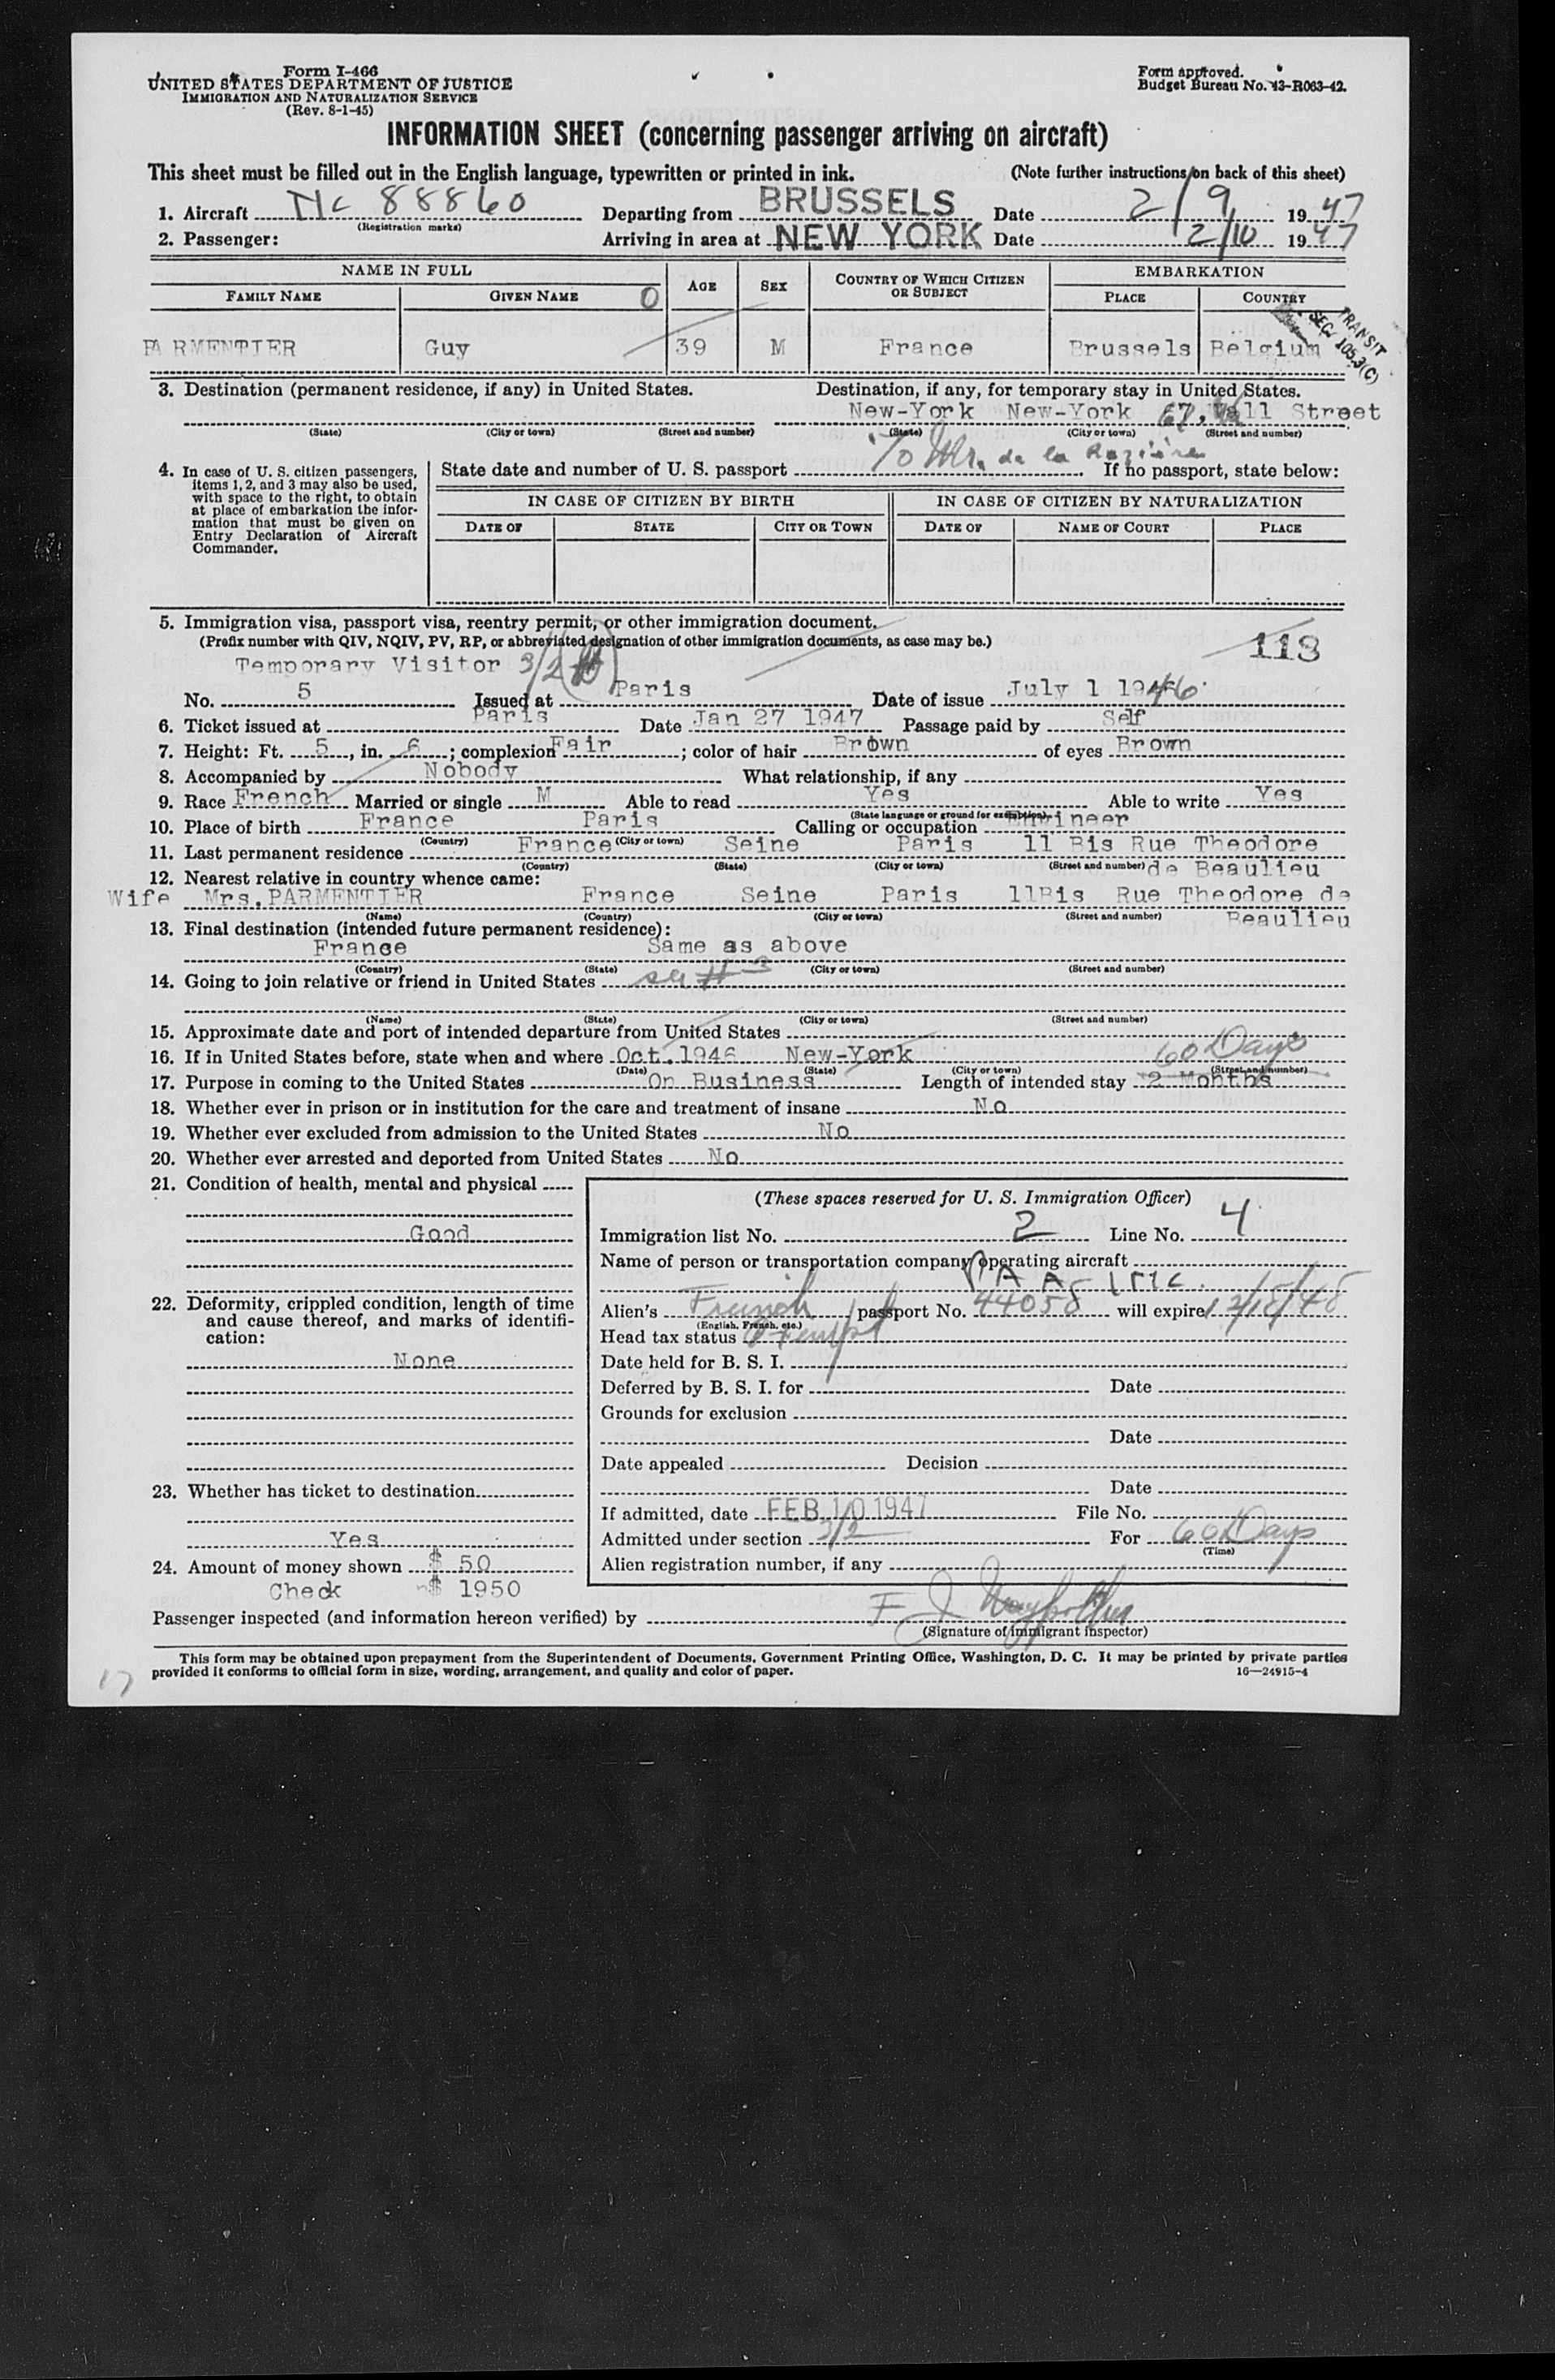 Form I-466
UNITED STATES DEPARTMENT OF JUSTICE
IMMIGRATION AND NATURALIZATION SERVICE
(Rev. 8-1-45)
Form approved.
Budget Bureau No. 43-R063-42.
INFORMATION SHEET (concerning passenger arriving on aircraft)
This sheet must be filled out in the English language, typewritten or printed in ink. (Note further instructions on back of this sheet)
1. Aircraft NC 88860 Departing from BRUSSELS Date 2/9 1947
(Registration marks)
2. Passenger: Arriving in area at NEW YORK Date 2/10 1947
NAME IN FULL AGE SEX COUNTRY OF WHICH CITIZEN OR SUBJECT EMBARKATION
FAMILY NAME GIVEN NAME 0 PLACE COUNTRY
TRANSIT
SEC. 105.3(C)
PARMENTIER Guy 39 M France Brussels Belgium
3. Destination (permanent residence, if any) in United States. Destination, if any, for temporary stay in United States.
New-York New-York 67, Wall Street
(State) (City or town) (Street and number) (State) (City or town) (Street and number)
c/o Mr. de la Rozière
4. In case of U. S. citizen passengers, items 1, 2, and 3 may also be used, with space to the right, to obtain at place of embarkation the information that must be given on Entry Declaration of Aircraft Commander.
State date and number of U. S. passport If no passport, state below:
IN CASE OF CITIZEN BY BIRTH IN CASE OF CITIZEN BY NATURALIZATION
DATE OF STATE CITY OR TOWN DATE OF NAME OF COURT PLACE
5. Immigration visa, passport visa, reentry permit, or other immigration document.
(Prefix number with QIV, NQIV, PV, RP, or abbreviated designation of other immigration documents, as case may be.) 118
Temporary Visitor 3/2
No. 5 Issued at Paris Date of issue July 1 1946
6. Ticket issued at Paris Date Jan 27 1947 Passage paid by Self
7. Height: Ft. 5, in. 6; complexion Fair; color of hair Brown of eyes Brown
8. Accompanied by Nobody What relationship, if any
9. Race French Married or single M Able to read Yes Able to write Yes
(State language or ground for exemption)
10. Place of birth France Paris Calling or occupation Engineer
(Country) (City or town)
11. Last permanent residence France Seine Paris 11 Bis Rue Theodore
(Country) (State) (City or town) (Street and number) de Beaulieu
12. Nearest relative in country whence came:
Wife Mrs. PARMENTIER France Seine Paris 11Bis Rue Theodore de
(Name) (Country) (City or town) (Street and number) Beaulieu
13. Final destination (intended future permanent residence):
France Same as above
(Country) (State) (City or town) (Street and number)
14. Going to join relative or friend in United States see # 3
(Name) (State) (City or town) (Street and number)
15. Approximate date and port of intended departure from United States
16. If in United States before, state when and where Oct. 1946 New-York 60 Days
(Date) (State) (City or town) (Street and number)
17. Purpose in coming to the United States On Business Length of intended stay 2 Months
18. Whether ever in prison or in institution for the care and treatment of insane No
19. Whether ever excluded from admission to the United States No
20. Whether ever arrested and deported from United States No
21. Condition of health, mental and physical
Good
22. Deformity, crippled condition, length of time and cause thereof, and marks of identification:
None
23. Whether has ticket to destination
Yes
24. Amount of money shown $ 50
Check $ 1950
(These spaces reserved for U. S. Immigration Officer)
Immigration list No. 2 Line No. 4
Name of person or transportation company operating aircraft
PAA INC.
Alien's French passport No. 44058 will expire 12/18/48
(English, French, etc.)
Head tax status Exempt
Date held for B. S. I.
Deferred by B. S. I. for Date
Grounds for exclusion
Date
Date appealed Decision
Date
If admitted, date FEB 10 1947 File No.
Admitted under section 3/2 For 60 Days
(Time)
Alien registration number, if any
Passenger inspected (and information hereon verified) by F J
(Signature of immigrant inspector)
This form may be obtained upon prepayment from the Superintendent of Documents, Government Printing Office, Washington, D. C. It may be printed by private parties
provided it conforms to official form in size, wording, arrangement, and quality and color of paper. 16—24915-4
17